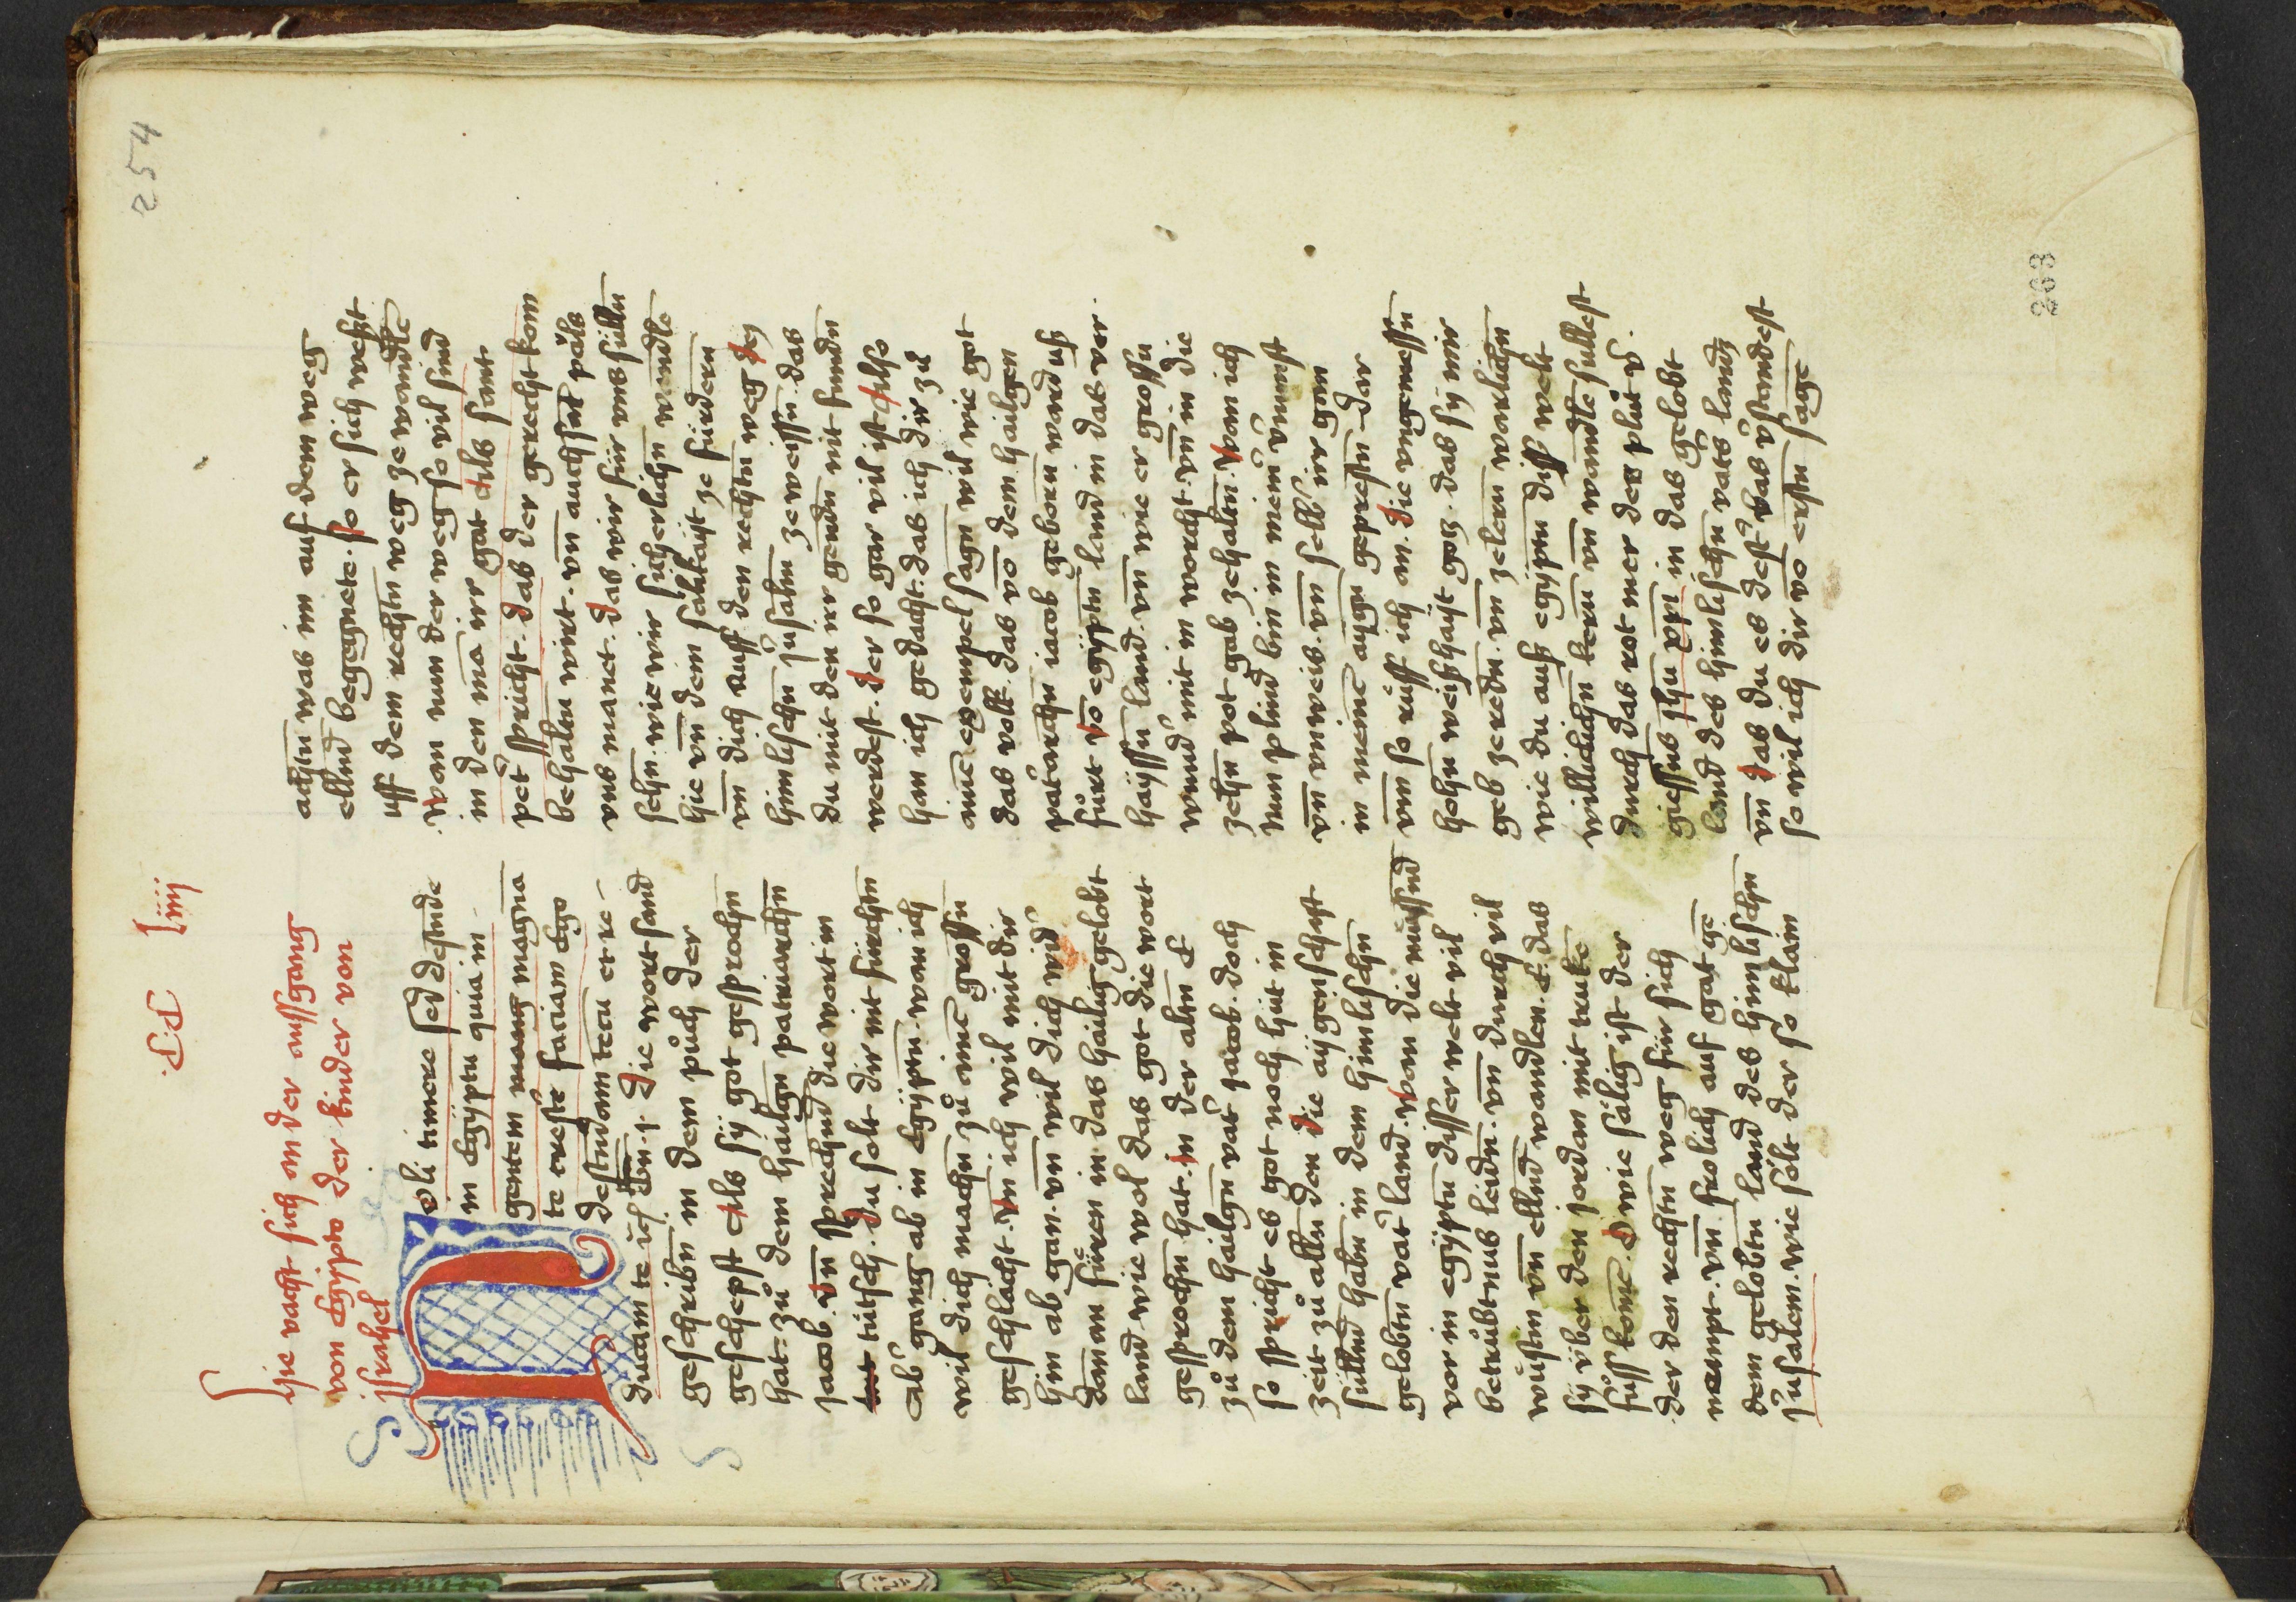 254
CC liiij
Hie vacht sich an der aussgang
von Egÿpto der kinder von
jsrahel
Noli timere sed destende
in Egÿptu quia in
gentem mang magna
te crestē faciam Ego
destendam tecu et re-
ducam te uch Die wort sand
geschribn̄ in dem pu̇ch der
geschepft Als sÿ got gesprochn̄
hat zu̇ dem hailgn̄ patriarchn̄
Jacob vn̄ sprechnd die wort in
tutsch. Du solt dir nit fürchtn̄
Ab gang ab in Egÿptn̄. wan ich
wil dich machn̄ zu̇ ainē grossn̄
geschlächt. Vn̄ ich wil mit dir
hin ab gan. vn̄ wil dich wid
dannan fürēn in das hailig gelobt
land wie wol das got die wort
gesprochn̄ hat. in der altn̄ E
zu̇ dem hailgn̄ vat Jacob. doch
so spricht es got noch hüt in
zeit zu̇ alln̄ den die aÿgenschaft
süllnd habn̄ in dem himlischn̄
gelobtn̄ vat land. Wan die müssnd
vor in egÿptn̄ disser welt vil
betru̇btnus leidn̄. vn̄ durch vil
wüstin vn̄ ellnd wandlen. E das
sÿ über den jordan mit truknē
fu̇ss komē. O wie sälig ist der
der den rechtn̄ weg für sich
nempt. vn̄ frolich auf gat gē
dem gelobtn̄ land des himlischn̄
Jrusalem. wie sölt der so klain
achtn̄ was im auf dem weg
ellnd begegnete. So er sich wesst
uff dem rechtn̄ weg ze wandlē
Wan nun der weg so vil sind
in den mā irr gat Als sant
peter spricht. das der gerecht kom
behaltn̄ wirt. vn̄ auch sat päls
vns manet. Das wir für vns süllen
sehn̄. wie wir sicherlichn̄ wendle
hie vn̄ dein sälikaÿt ze fürdern
vn̄ dich auff den rechtn̄ weg des
himlischn̄ Jrusalem ze weissn̄. das
du mit den irr gendn̄ nit fundn̄
werdest. Der so gar vil ist Also
han ich gedacht. das ich dir zu̇
ainē exempel sagn̄ wil wie got
das volk. das vō dem hailgen
patarchn̄ iacob geborn ward uß
fu̇rt Vō egÿptn̄ land in das ver
haÿssn̄ land. vn̄ wie er grossu
wund mit in worcht. vn̄ in die
zehn̄ pot gab zehaltn̄. Wan ich
nun plind bin in mein vnunst
vn̄ vnweis. vn̄ sellb irr gan
in meinē aÿgn̄ geprestn̄ dar
vm̄ so ru̇ff ich an. die vngemessn̄
hohn̄ weißhaÿt gotz. das sÿ mir
geb zeredn̄. vn̄ zelern warlichn̄
wie du auß egÿptn̄ diss welt
willichchn̄ kern vn̄ wandlē sullest
durch das rot mer des plu̇t v
giessns Jhū xpi in das gelobt
land des himlischn̄ vats landz
vn̄ Das du es dest bas ūstandest
so wil ich dir vō erstn̄ sage
263